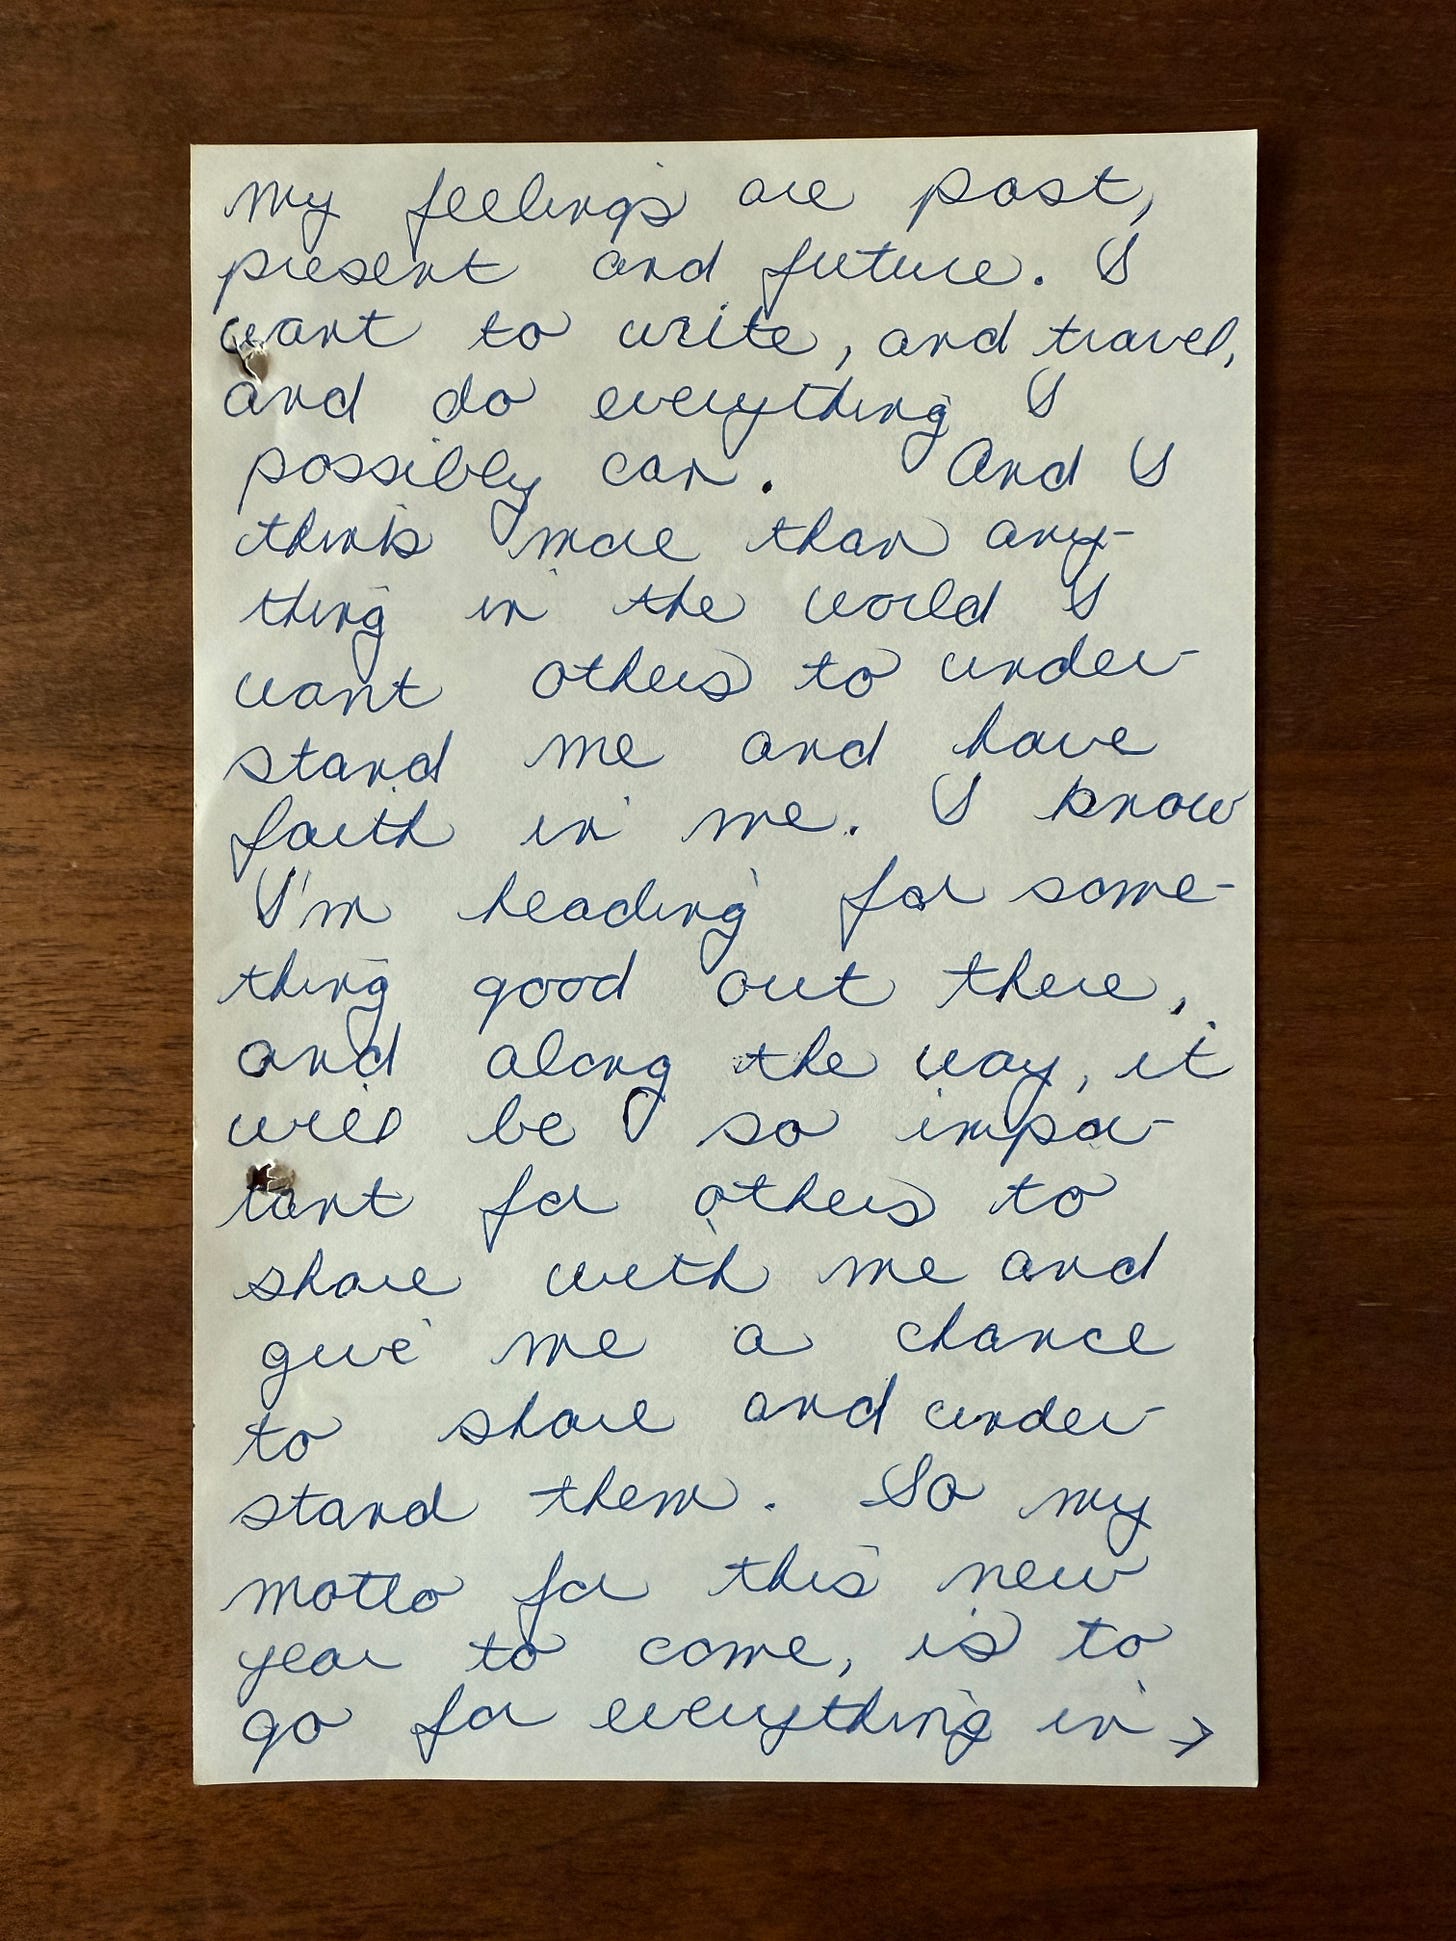 my feelings are past,
present and future. I
want to write, and travel,
and do everything I
possibly can. And I
think more than any-
thing in the world I
want others to under-
stand me and have
faith in me. I know
I'm heading for some-
thing good out there,
and along the way, it
will be so impor-
tant for others to
share with me and
give me a chance
to share and under-
stand them. So my
motto for this new
year to come, is to
go for everything in →